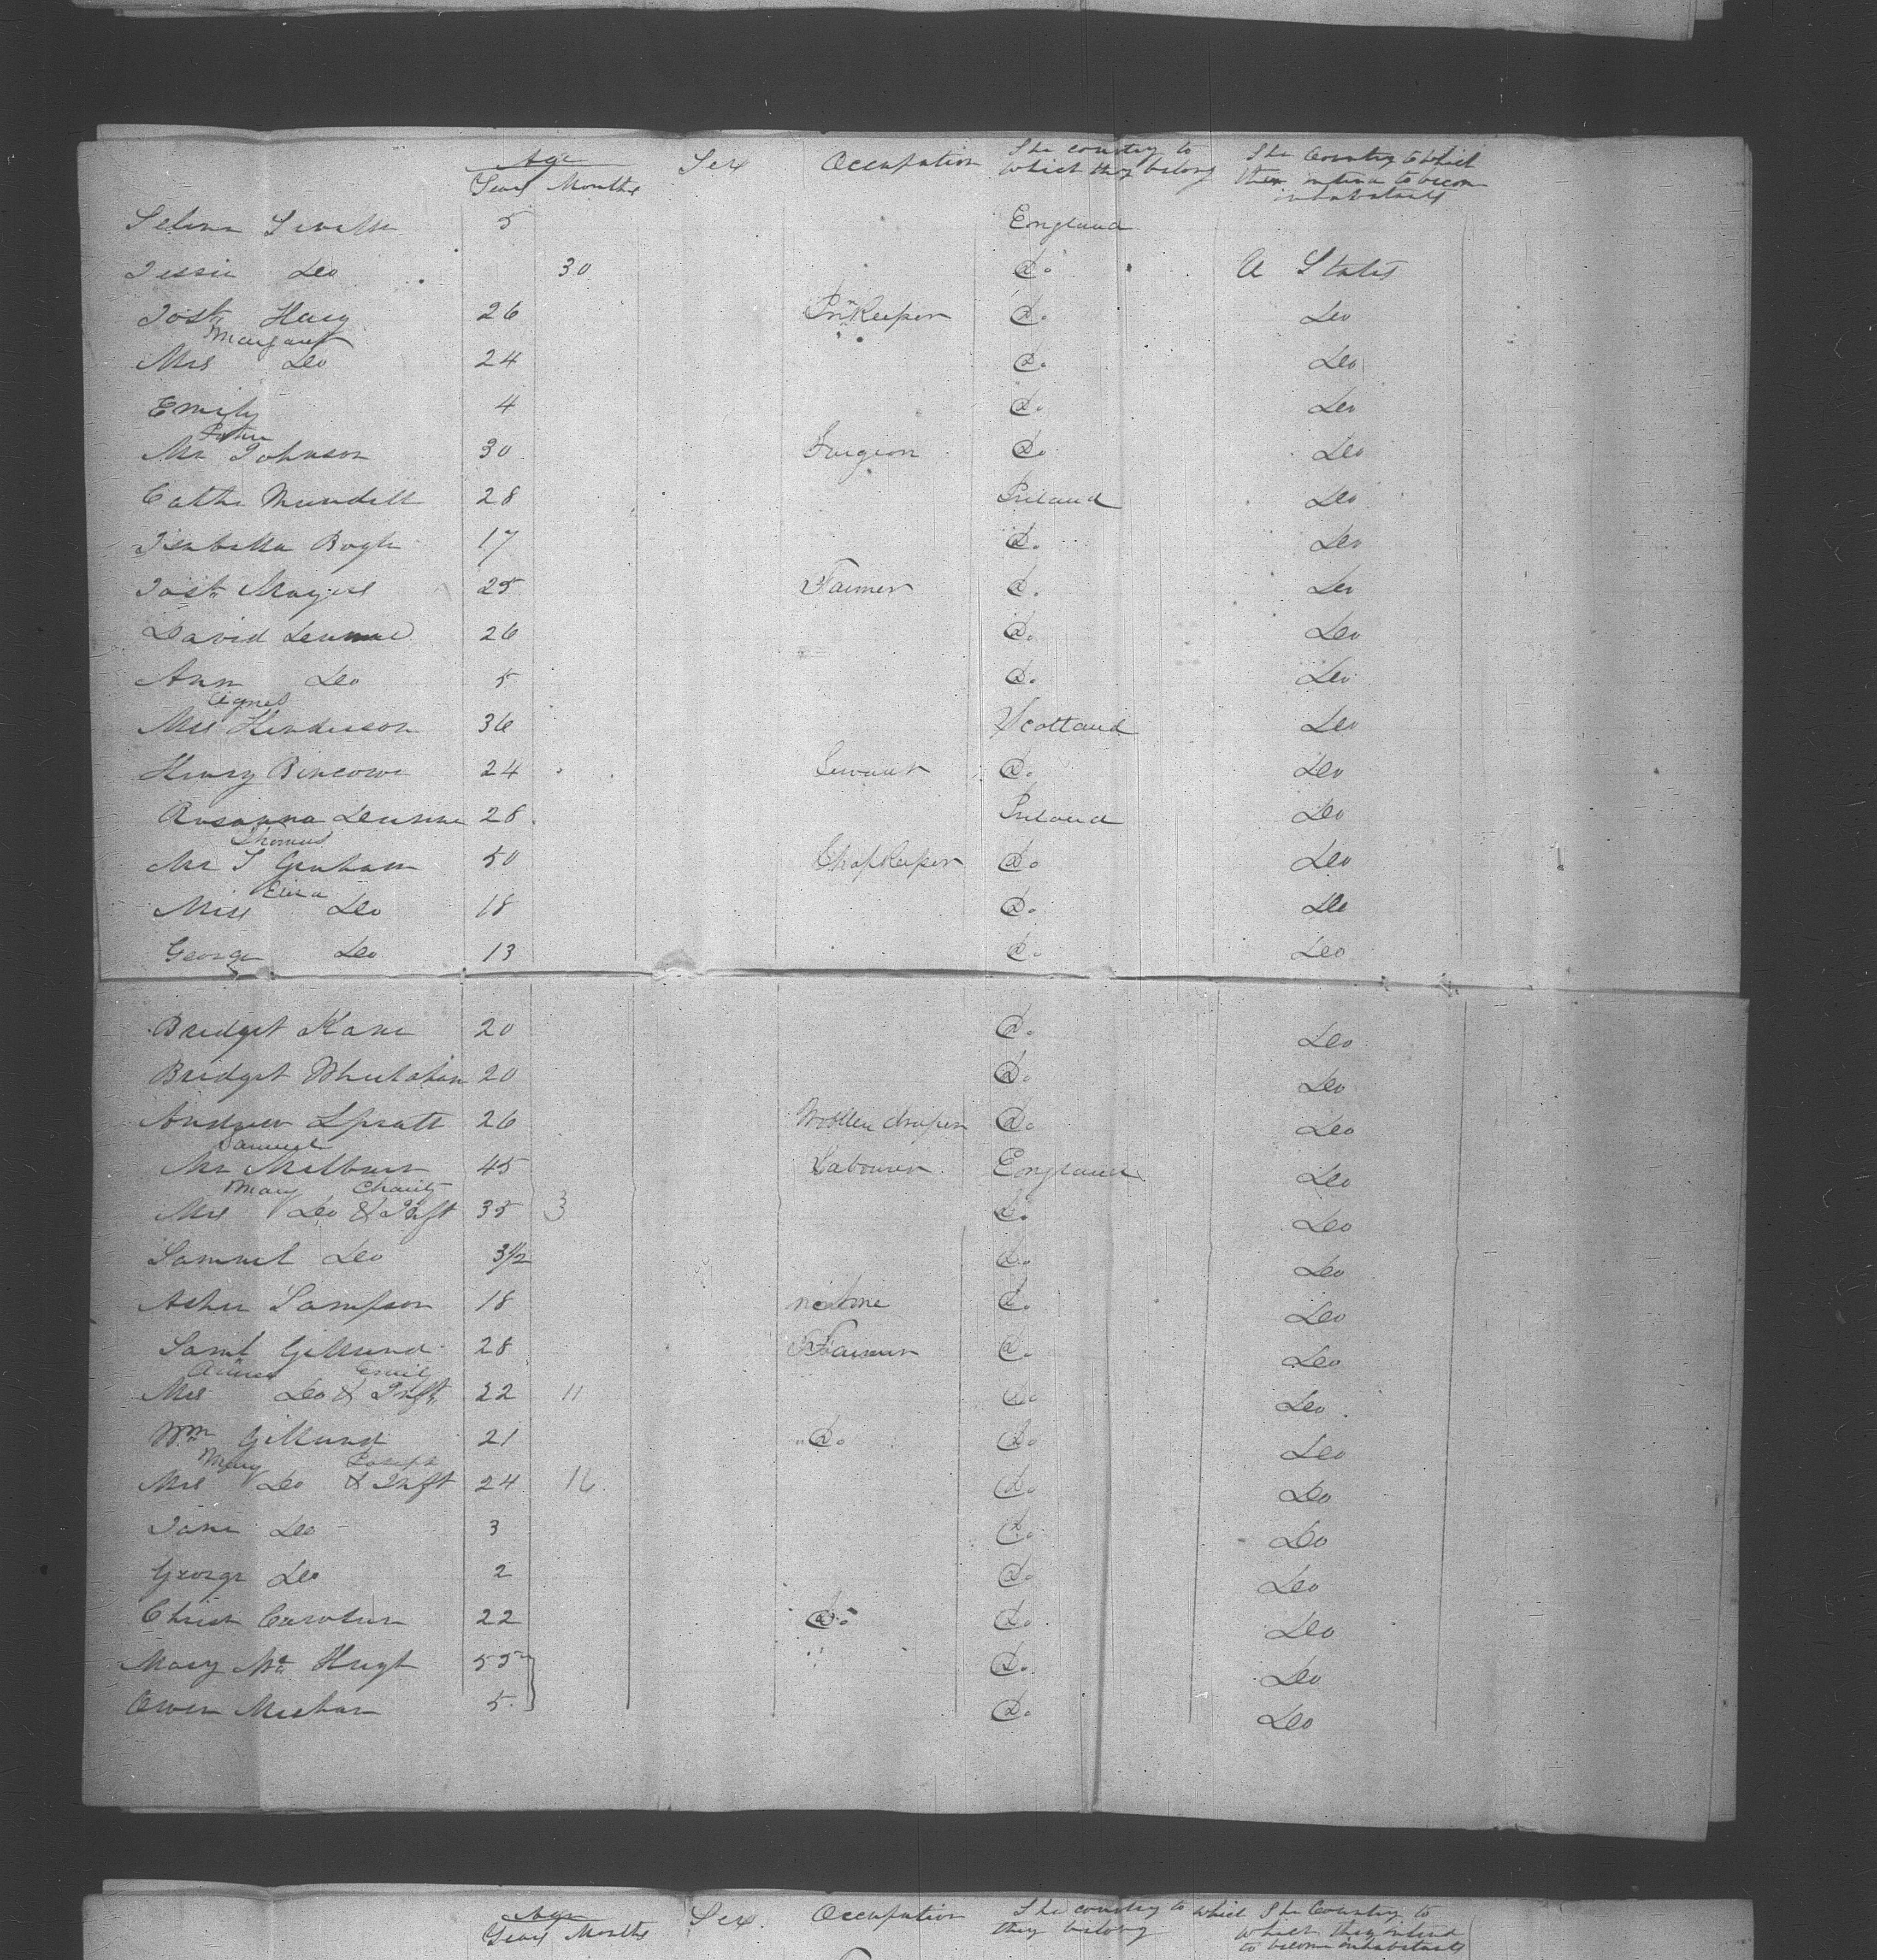 Age Sex Occupation The country to which they belong The Country to which they intend to become inhabitants
Years Months
Selina 5 England
Jessie Do 30 Do. U States
Josh Hary 26 InnKeeper Do. Do
Margaret
Mrs Do 24 Do. Do
Emily 4 Do. Do
Mr Johnson 30 Surgeon Do. Do
Cathe Mundell 28 Ireland Do
Isabella Bogle 17 Do. Do
Josh Mayes 25 Farmer Do. Do
David 26 Do. Do
Ann Do 5 Do. Do
Agnes
Mrs Henderson 36 Scotland Do
Henry Bincowe 24 Servant Do. Do
Rosanna 28 Ireland Do
Thomas
Mr T Graham 50 Shopkeeper Do. Do
Eliza
Miss Do 18 Do. Do
George Do 13 Do. Do
Bridget Kane 20 Do. Do
Bridget 20 Do. Do
Andrew Spratt 26 Woollen draper Do. Do
Samuel
Mr Milburn 45 Labourer England Do
Mary Charity
Mrs Do & Inft 35 3 Do. Do
Samuel Do 3 1/2 Do. Do
Asher Sampson 18 Do. Do
Saml Gilland 28 Farmer Do. Do
Emily
Mrs Do & Inft 22 11 Do. Do
Wm Gilland 21 Do. Do. Do
Mary Joseph
Mrs Do & Inft 24 16 Do. Do
Jane Do 3 Do. Do
George Do 2 Do. Do
Christr 22 Do. Do. Do
Mary Mc Hugh 55 Do. Do
Owen Meehan 5 Do. Do
Age Sex. Occupation The country to which they belong The Country to which they intend to become inhabitants
Years Months